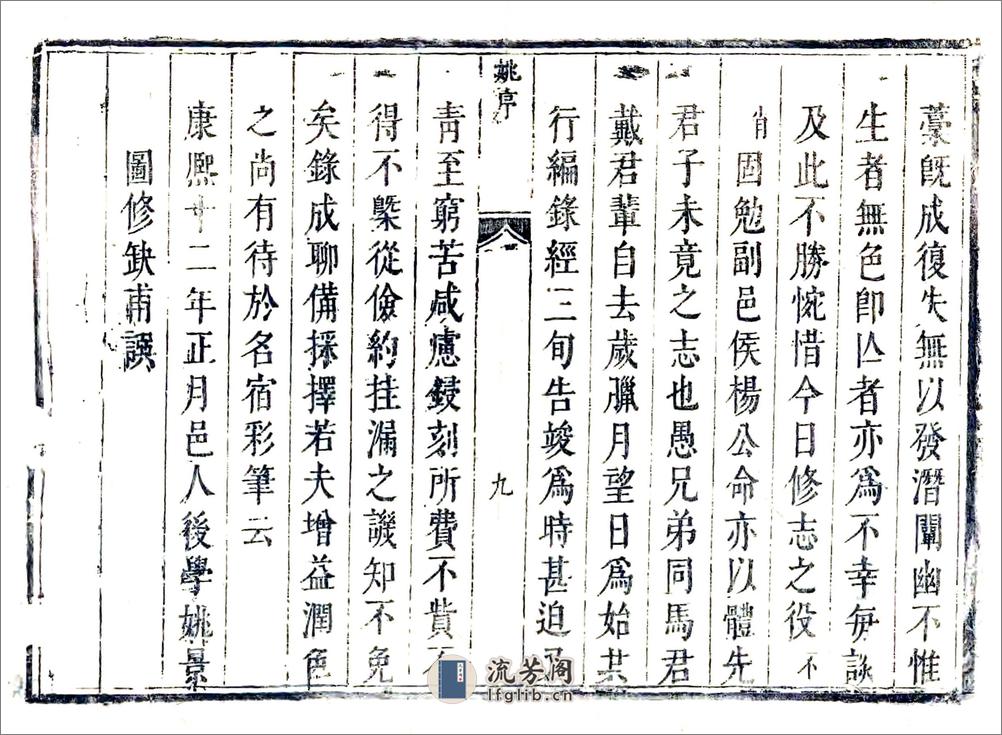 藁旣成復失無以發潛闡幽不惟
生者無色卽亾者亦爲不幸每談
及此不勝惋惜今日修志之役不
肖固勉副邑侯楊公命亦以體先
君子未竟之志也愚兄弟同馬君
戴君輩自去歲臘月望日爲始共
行編錄經三旬告竣爲時甚迫
姚序
九
靑至窮苦咸慮鋟刻所費不貲
得不槩從儉約挂漏之譏知不免
矣錄成聊備採擇若夫增益潤色
之尚有待於名宿彩筆云
康熙十二年正月邑人後學姚景
圖修缺甫譔
流芳阁
lfglib.cn